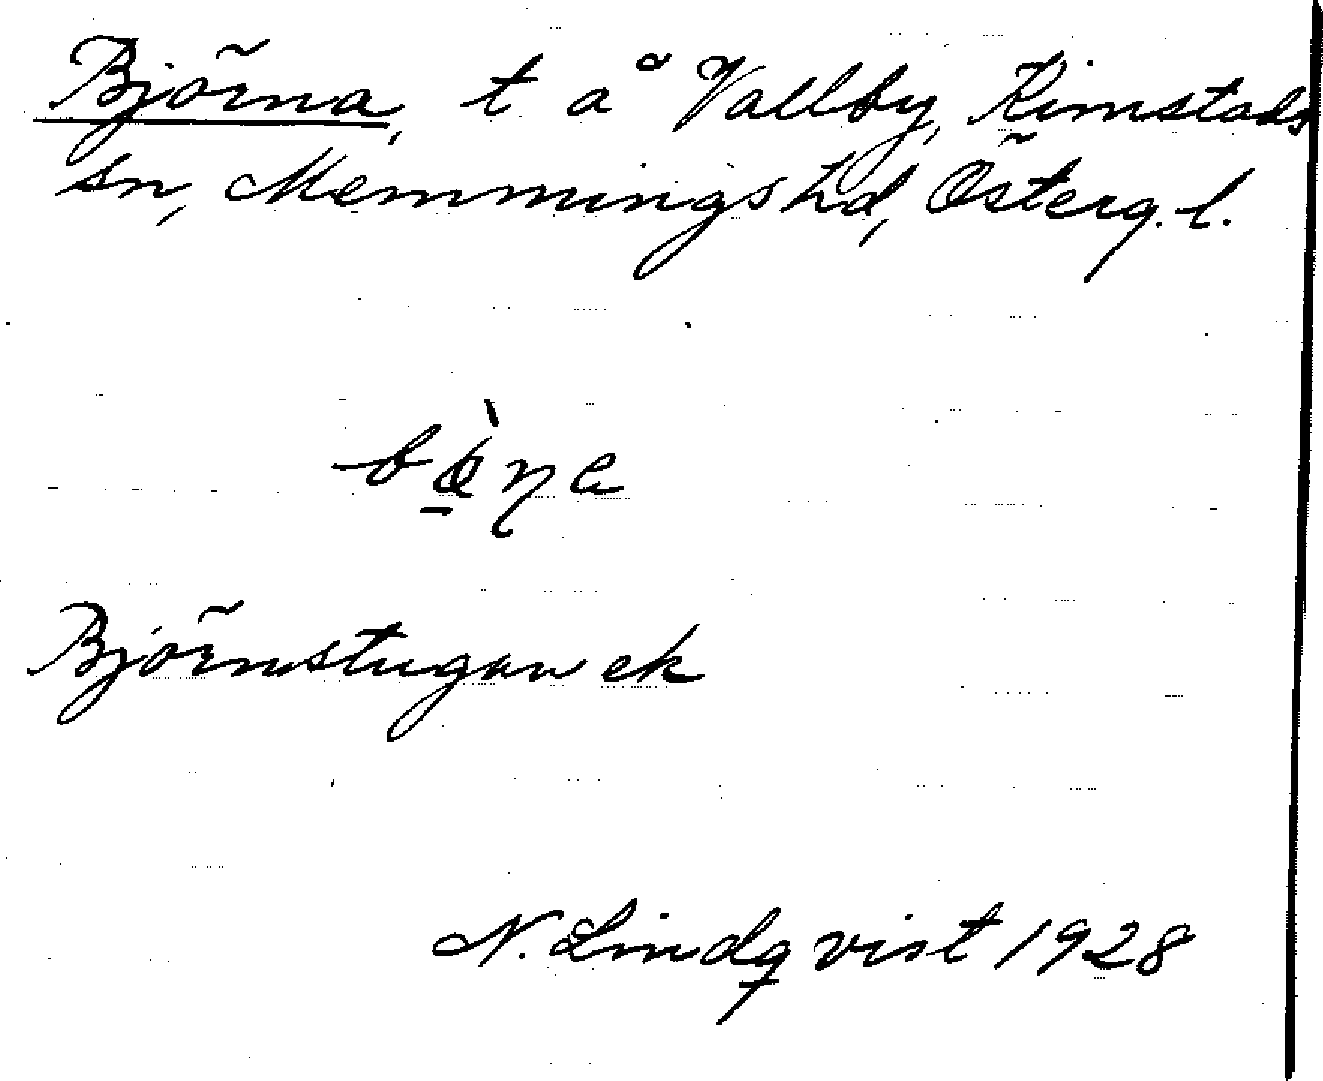 Björna, t å Vallby, Kimstads
sn, Memmings hd, Österg. l.
Björnstugan ek
N. Lindqvist 1928